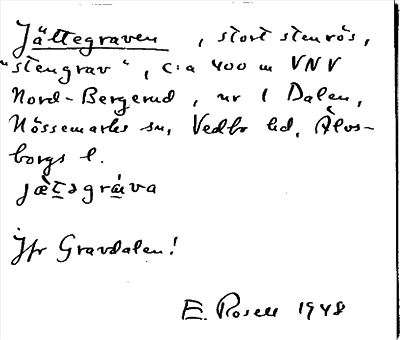 Jättegraven, stort stenrös,
"stengrav", c:a 400 m VNV
Nord-Bergerud, nr 1 Dalen,
Nössemarks sn, Vedbo hd, Älvs-
borgs l.
jæt̲əgrá̲va
Jfr Gravdalen!
E. Rosell 1948